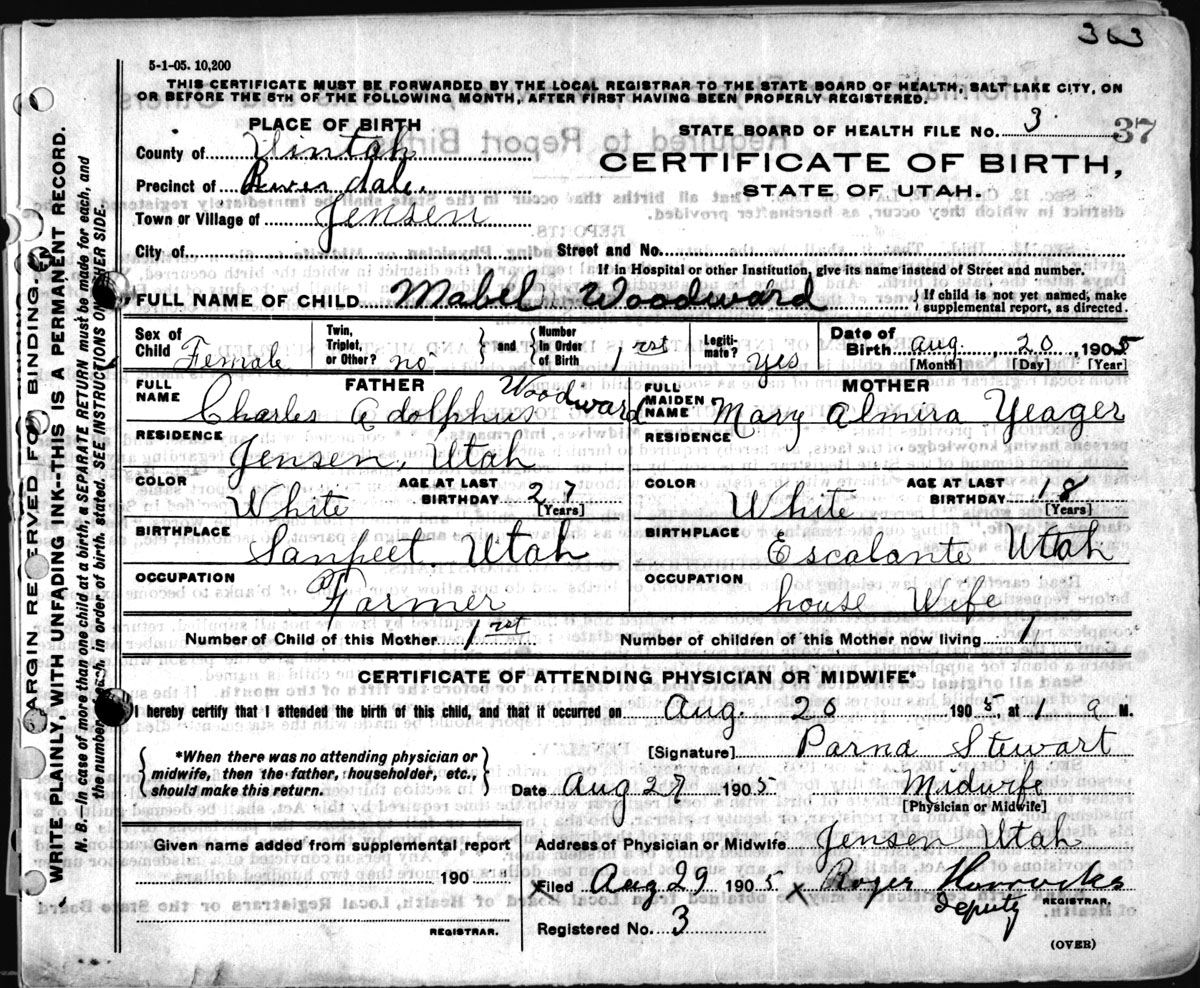 363
5-1-05. 10,200
THIS CERTIFICATE MUST BE FORWARDED BY THE LOCAL REGISTRAR TO THE STATE BOARD OF HEALTH, SALT LAKE CITY, ON
OR BEFORE THE 5TH OF THE FOLLOWING MONTH, AFTER FIRST HAVING BEEN PROPERLY REGISTERED.
PLACE OF BIRTH
STATE BOARD OF HEALTH FILE No. 3 37
County of Uintah
CERTIFICATE OF BIRTH,
Precinct of River dale.
STATE OF UTAH.
Town or Village of Jensen
City of Street and No.
If in Hospital or other Institution, give its name instead of Street and number.
FULL NAME OF CHILD Mabel Woodward { If child is not yet named, make supplemental report, as directed.
Sex of Child Female Twin, Triplet, or Other? no } and { Number in Order of Birth 1rst Legiti-mate? yes Date of Birth Aug. 20, 1905
[Month] [Day] [Year]
FULL NAME FATHER Charles Adolphus Woodward
FULL MAIDEN NAME MOTHER Mary Almira Yeager
RESIDENCE Jensen, Utah RESIDENCE
COLOR White AGE AT LAST BIRTHDAY 27 [Years] COLOR White AGE AT LAST BIRTHDAY 18 [Years]
BIRTHPLACE Sanpeet, Utah BIRTHPLACE Escalante Utah
OCCUPATION Farmer OCCUPATION house Wife
Number of Child of this Mother 1rst Number of children of this Mother now living 1
CERTIFICATE OF ATTENDING PHYSICIAN OR MIDWIFE*
I hereby certify that I attended the birth of this child, and that it occurred on Aug. 20 1905 at 1 a M.
{ *When there was no attending physician or midwife, then the father, householder, etc., should make this return. }
[Signature] Parna Stewart
Date Aug 27 1905 Midwife
[Physician or Midwife]
Given name added from supplemental report
Address of Physician or Midwife Jensen Utah
190
Filed Aug 29 1905 X Roger Horrocks
Deputy REGISTRAR.
REGISTRAR.
Registered No. 3
(OVER)
MARGIN RESERVED FOR BINDING.
WRITE PLAINLY, WITH UNFADING INK--THIS IS A PERMANENT RECORD.
N. B.—In case of more than one child at a birth, a SEPARATE RETURN must be made for each, and
the number of each, in order of birth, stated. SEE INSTRUCTIONS ON OTHER SIDE.